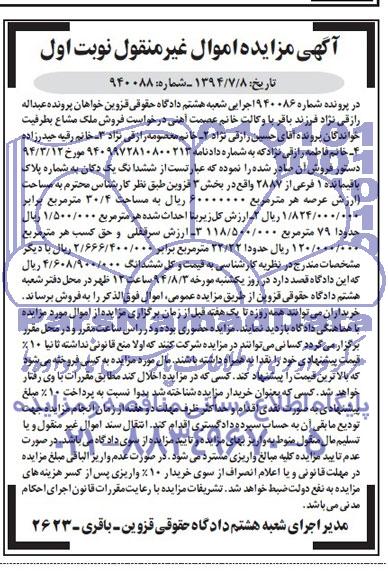 آگهی مزایده اموال غیر منقول نوبت اول
تاریخ: ۱۳۹۴/۷/۸ - شماره: ۹۴۰۰۸۸
در پرونده شماره ۹۴۰۰۸۶ اجرایی شعبه هشتم دادگاه حقوقی قزوین خواهان پرونده عبداله
رازقی نژاد فرزند باقر با وکالت خانم عصمت آهنی درخواست فروش ملک مشاع بطرفیت
خواندگان پرونده آقای حسین رازقی نژاد ۲- خانم معصومه رازقی نژاد ۳- خانم رقیه حیدرزاده
۴- خانم فاطمه رازقی نژاد که به شماره دادنامه ۹۴۰۹۹۷۲۸۱۰۸۰۰۲۱۳ مورخ ۹۴/۳/۱۲
دستور فروش آن صادر شده را نموده که عبارتست از ششدانگ یک دکان به شماره پلاک
باقیمانده ۱ فرعی از ۲۸۸۷ واقع در بخش ۳ قزوین طبق نظر کارشناس محترم به مساحت
(ارزش عرصه هر مترمربع ۶۰۰۰۰۰۰۰ ریال به مساحت ۳۰/۴ مترمربع برابر
۱/۸۲۴/۰۰۰/۰۰۰ ریال ۲- ارزش کل زیربنا احداث شده هر مترمربع ۱/۵۰۰/۰۰۰ ریال
حدودا ۷۹ مترمربع ۱۱۸/۵۰۰/۰۰۰ ۳- ارزش سرقفلی و حق کسب هر مترمربع
۱۲۰/۰۰۰/۰۰۰ ریال حدودا ۲۲/۲۲ مترمربع برابر ۲/۶۶۶/۴۰۰/۰۰۰ ریال با دیگر
مشخصات مندرج در نظریه کارشناسی به قیمت و کل ششدانگ ۴/۶۰۸/۹۰۰/۰۰۰ ریال
که این دادگاه قصد دارد در روز یکشنبه مورخه ۹۴/۸/۳ ساعت ۱۲ ظهر در محل دفتر شعبه
هشتم دادگاه حقوقی قزوین از طریق مزایده عمومی، اموال فوق الذکر را به فروش برساند.
خریداران می توانند همه روزه تا یک هفته قبل از زمان برگزاری مزایده از اموال مورد مزایده
با هماهنگی دادگاه بازدید نمایند. مزایده حضوری بوده و در راس ساعت مقرر و در محل مقرر
برگزار می گردد کسانی می توانند در مزایده شرکت کنند که اولا منع قانونی نداشته ثانیا ۱۰٪
قیمت پیشنهادی خود را نقدا به همراه داشته باشند. مال مورد مزایده به کسی فروخته می شود
که بالاترین قیمت را پیشنهاد کند. کسی که در مزایده اخلال کند مطابق مقررات با وی رفتار
خواهد شد. کسی که بعنوان خریدار مزایده شناخته شد بدوا نسبت به پرداخت ۱۰٪ مبلغ
پیشنهادی به صورت نقدی اقدام و حداکثر ظرف مهلت دو هفته از زمان انجام مزایده جهت
تودیع مابقی آن به حساب سپرده دادگستری اقدام کند. انتقال سند اموال غیر منقول و یا
تسلیم مال منقول منوط به واریز بهای مزایده و تایید مزایده از سوی دادگاه می باشد. در صورت
عدم تایید مزایده کلیه مبالغ واریزی مسترد می شود. در صورت عدم واریز الباقی مبلغ مزایده
در مهلت قانونی و یا اعلام انصراف از سوی خریدار ۱۰٪ واریزی پس از کسر هزینه های
مزایده به نفع دولت ضبط خواهد شد. تشریفات مزایده با رعایت مقررات قانون اجرای احکام
مدنی می باشد.
مدیر اجرای شعبه هشتم دادگاه حقوقی قزوین - باقری - ۲۶۲۳